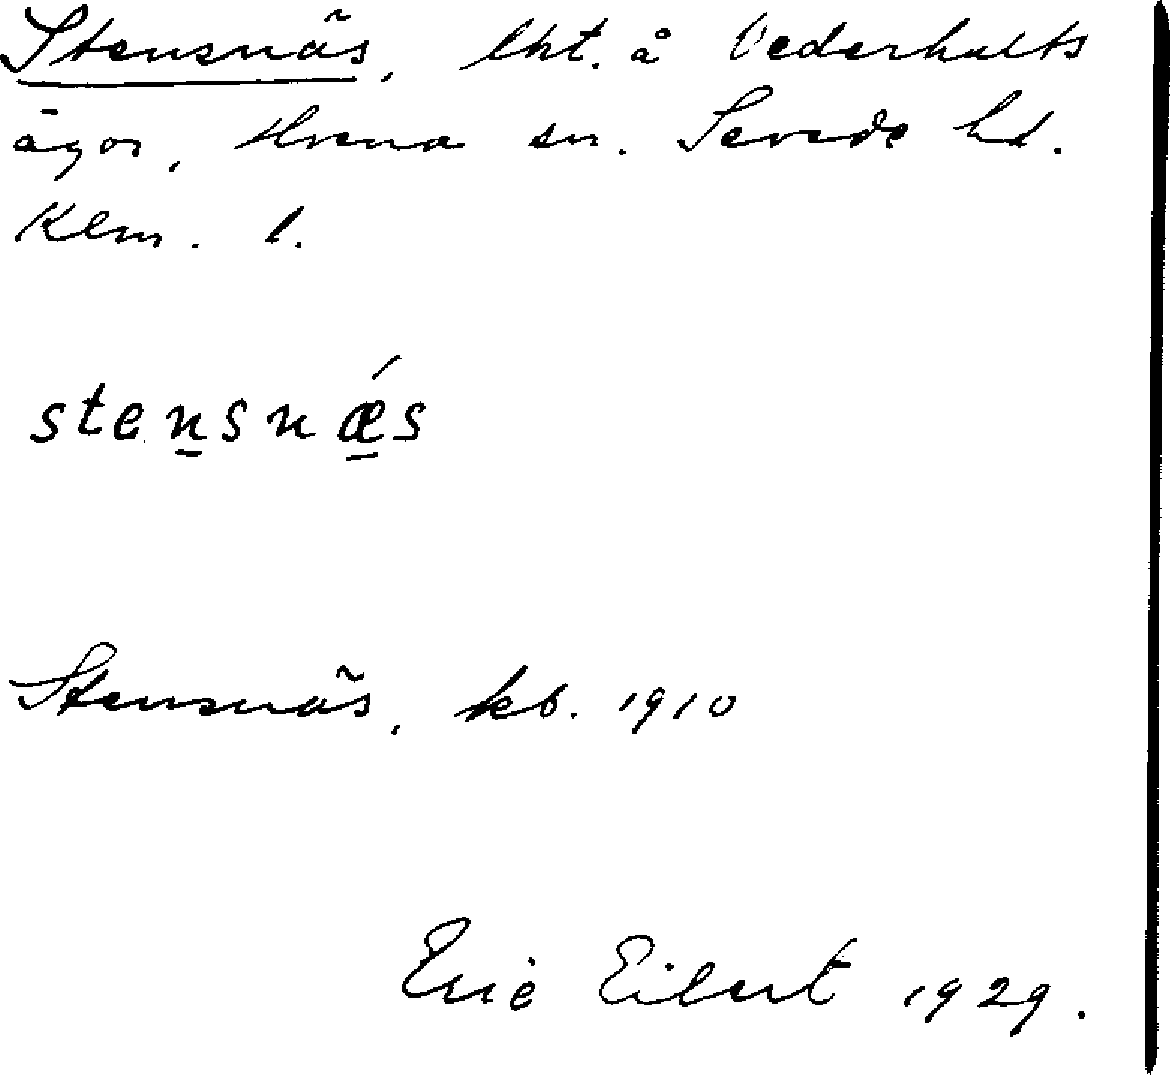 Stensnäs, lht. å Vederhults
ägor, Hvena sn. Sevede hd.
Klm. l.
stens̲nǽ̲s
Stensnäs, kb. 1910
Eric Eilert 1929.